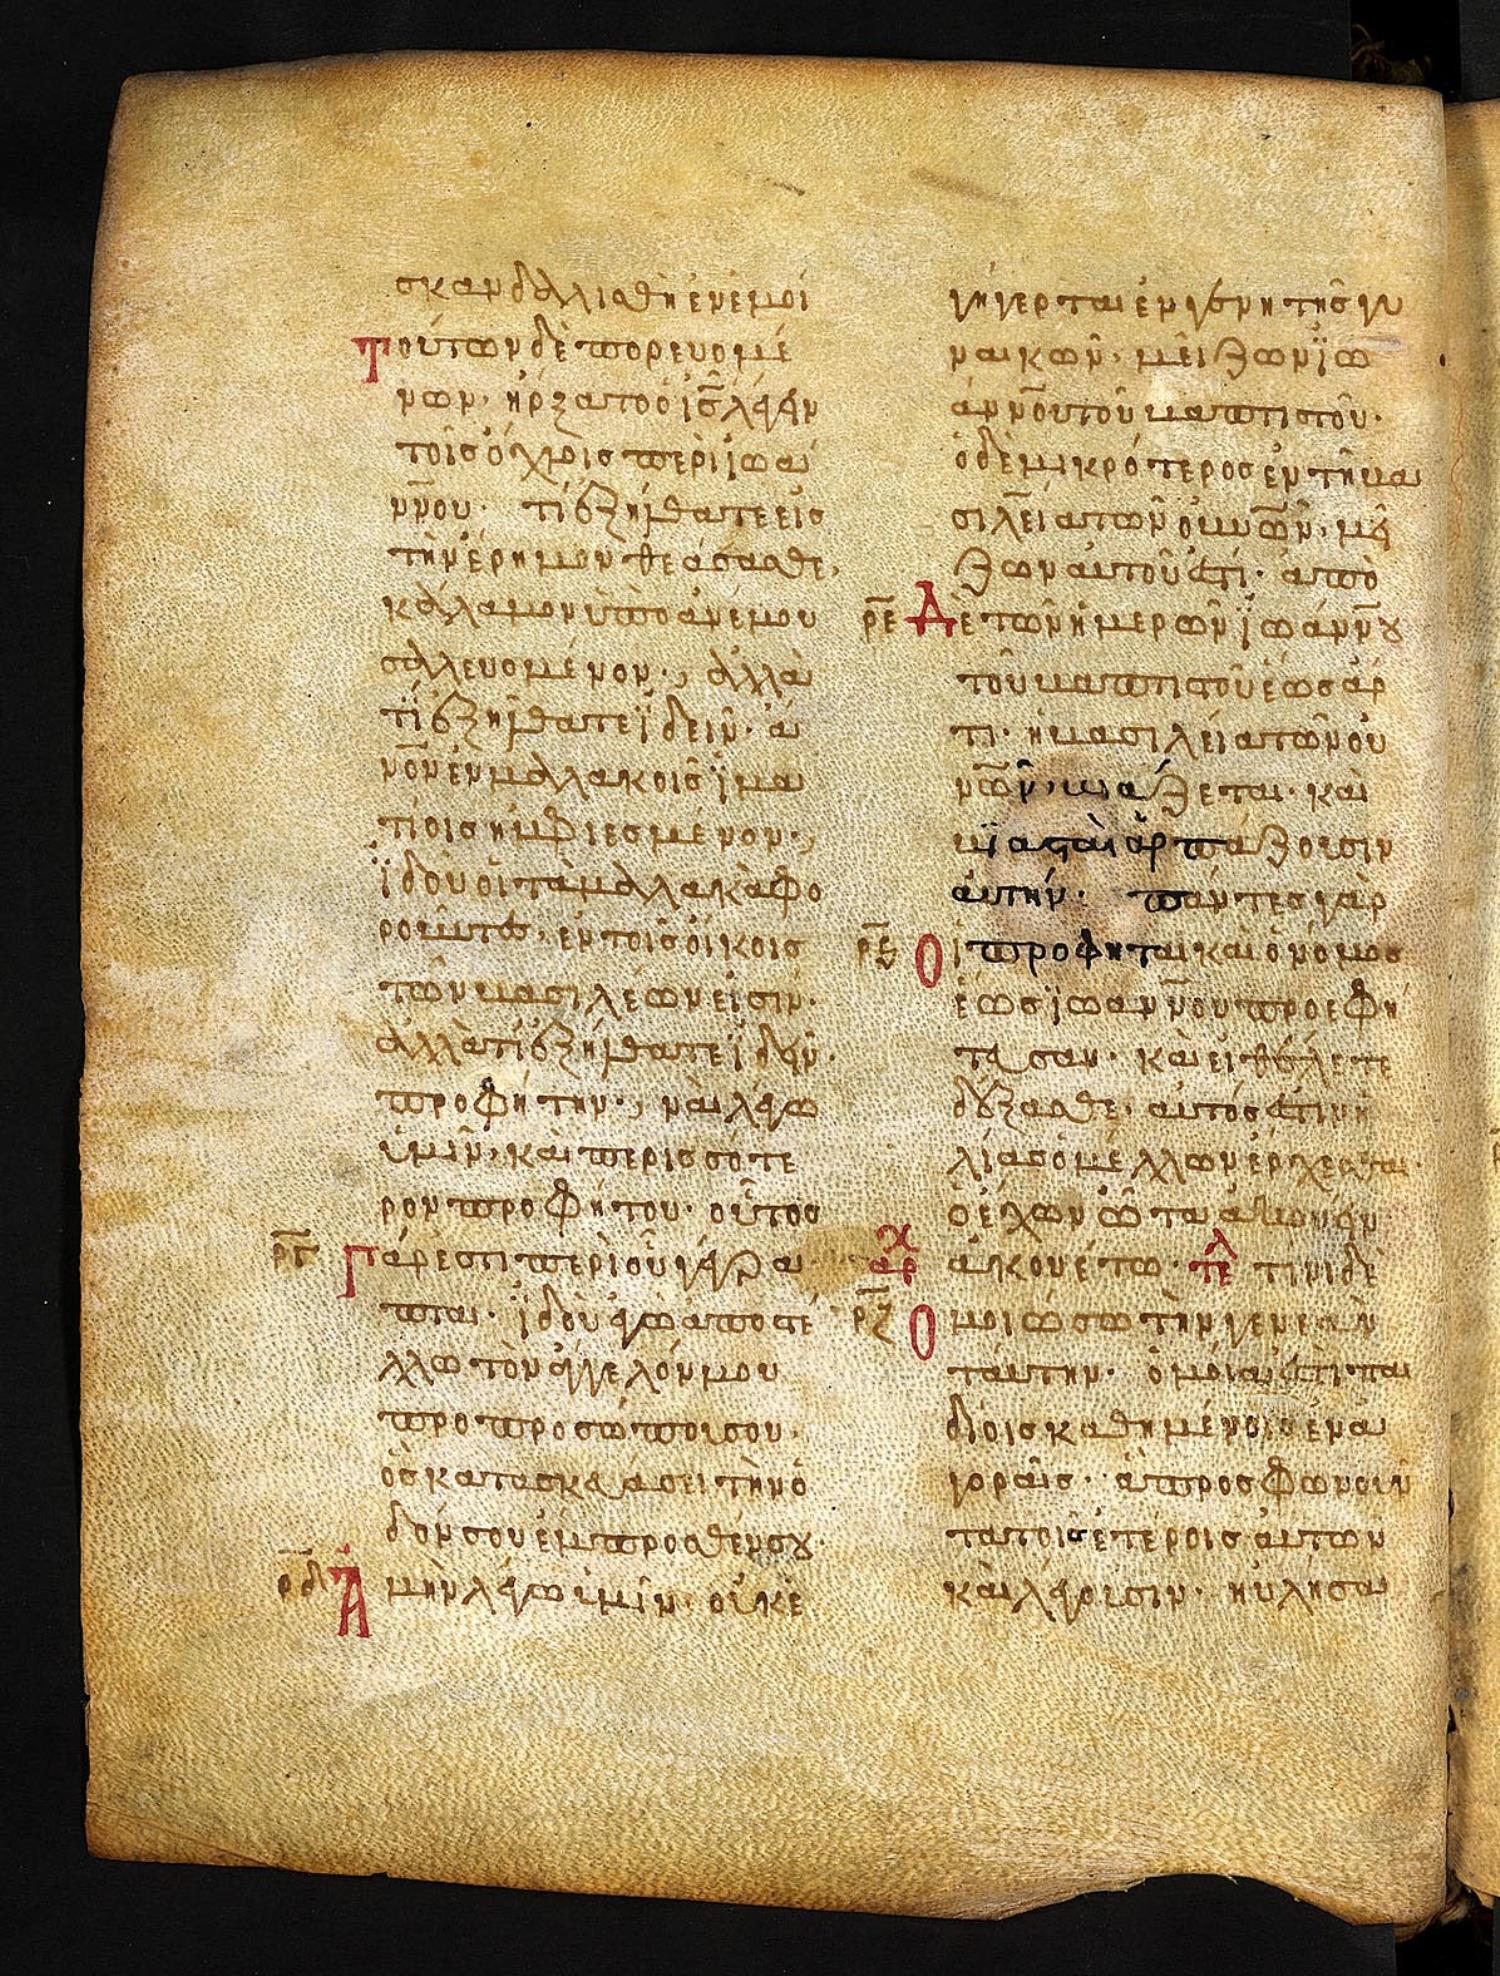 σκανδαλλισθῆ ἐν ἐμοί
Τούτων δὲ πορευομέ
νων, ἤρξατο ὁ ις̅ λέγειν
τοῖς ὄχλοις περὶ ἰωά
ννου. τί ἐξήλθατε εἰς
τὴν ἔρημον θεάσασθε,
κάλαμον ὑπὸ ἀνέμου
σαλλευομένον·, ἀλλὰ
τί ἐξήλθατε ϊδεῖν. ἀ
νο̅ν ἐν μαλλακοῖς ϊμα
τίοις ἠμφιεσμένον·,
ϊδοῦ οἱ τὰ μαλλακὰ φο
ροῦντες, ἐν τοῖς οἴκοις
τῶν βασιλέων εἰσίν.
ἀλλὰ τί ἐξήλθατε ϊδεῖν.
προφήτην·, ναὶ λέγω
ὑμῖν, καὶ περισσότε
ρον προφήτου. οὗτος
ργ̅ Γάρ ἐστι περὶ οὗ γέγρα
πται. ϊδοὺ ἐγὼ ἀποστέ
λλω τὸν ἄγγελόν μου
πρὸ προσώπου σου.
ὃς κατασκευάσει τὴν ὁ
δόν σου ἔμπροσθέν σου.
ρδ̅ Ἀμὴν λέγω ὑμῖν. οὐκ ἐ
γήγερται ἐν γεννητῆς γυ
ναικῶν, μείζων ϊω
άννου τοῦ βαπτιστοῦ.
ὁ δὲ μικρότερος ἐν τῆ βα
σιλεία τῶν ου̅νω̅ν, μεί
ζων αὐτοῦ ἐστι. ἀπὸ
ρε̅ Δὲ τῶν ἡμερῶν ϊωάννου
τοῦ βαπτιστοῦ ἕως ἄρ
τι. ἡ βασιλεία τῶν οὐ
νω̅ν, βιάζεται. καὶ
βϊασταὶ ἁρπάζουσιν
αὐτήν. πάντες γὰρ
ρϛ̅ Οἱ προφῆται καὶ ὁ νόμος
ἕως ϊωάννου προεφή
τευσαν. καὶ εἰ θέλετε
δέξασθε. αὐτός ἐστιν ἡ
λίας ὁ μέλλων ἔρχεσθαι.
ὁ ἔχων ὦτα ἀκούειν
αρχ ἀκουέτω. τελ τίνι δὲ
ρζ̅ Ὁμοιώσω τὴν γενεὰν
ταύτην. ὁμοία ἐστὶ παι
δίοις καθημένοις ἐν ἀ
γοραῖς. ἃ προσφωνοῦν
τα τοῖς ἑτέροις αὐτῶν
καὶ λέγουσιν. ηὐλήσα